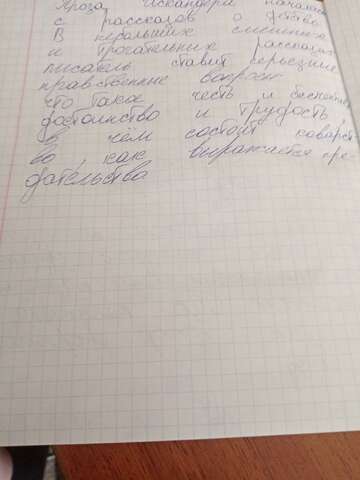 Проза Искандера началась
с рассказов о детстве
В небольших смешных
и трогательных рассказах
писатель ставит серьёзные
нравственные вопросы
что такое честь и бесчестие
достоинство и трусость,
в чём состоит коварст
во, как выражается пре
дательство